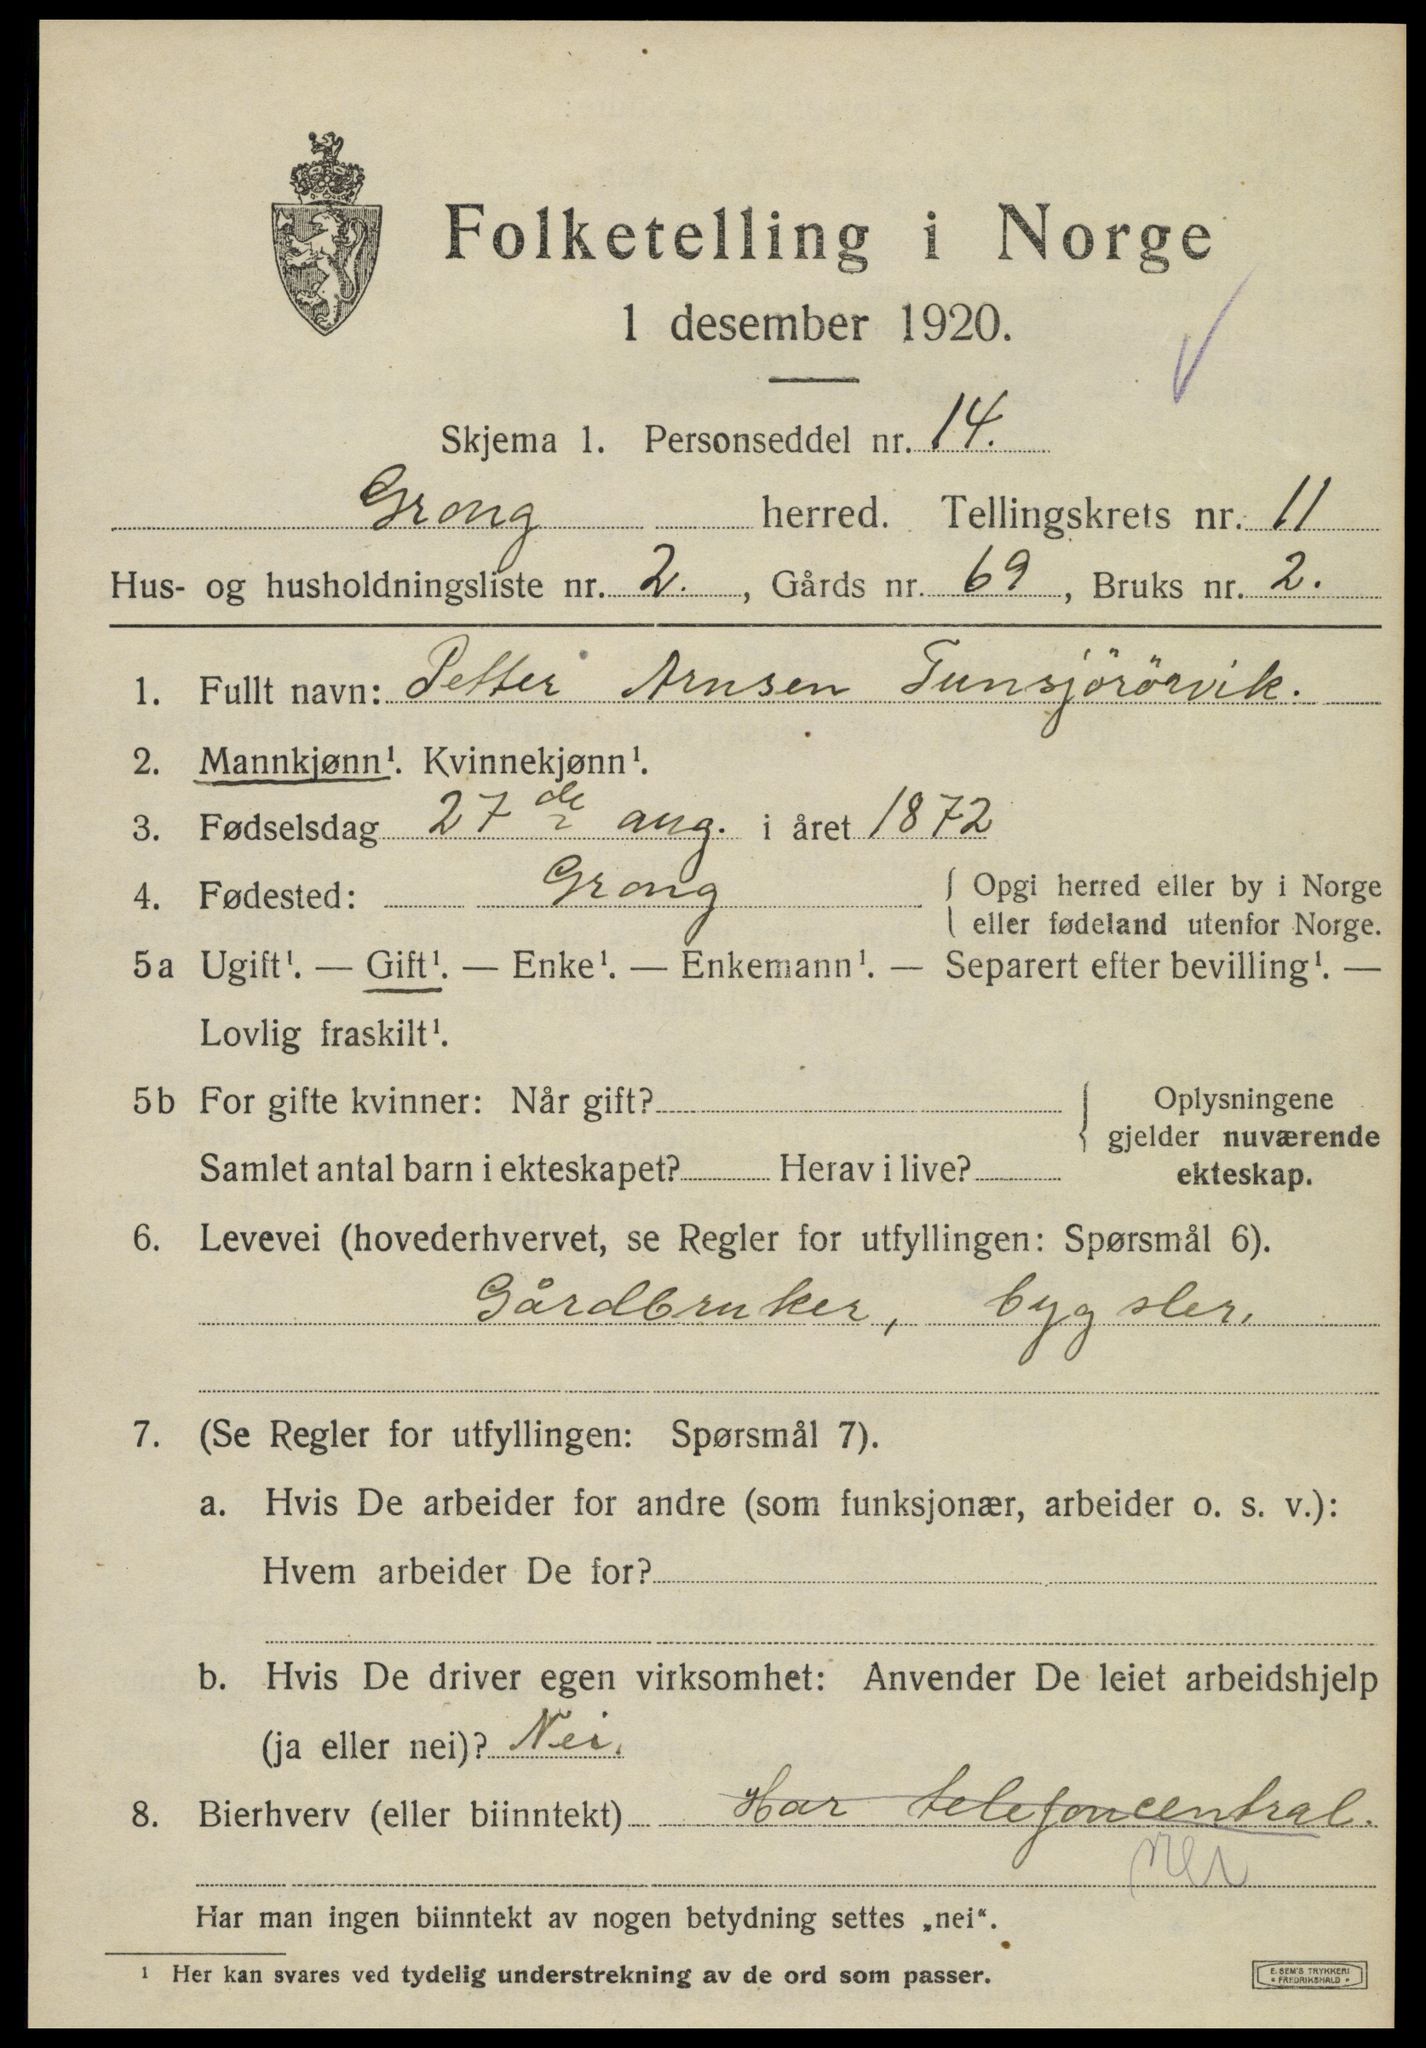 Folketelling i Norge
1 desember 1920.
Skjema 1. Personseddel nr. 14.
Grong herred. Tellingskrets nr. 11
Hus- og husholdningsliste nr. 2. , Gårds nr. 69 , Bruks nr. 2.
1. Fullt navn: Petter Arnsen Tunsjörörvik.
2. Mannkjønn¹. Kvinnekjønn¹.
3. Fødselsdag 27de aug. i året 1872
4. Fødested: Grong { Opgi herred eller by i Norge
eller fødeland utenfor Norge.
5a Ugift¹. — Gift¹. — Enke¹. — Enkemann¹. — Separert efter bevilling¹. —
Lovlig fraskilt¹.
5b For gifte kvinner: Når gift? { Oplysningene
gjelder nuværende
Samlet antal barn i ekteskapet? Herav i live? ekteskap.
6. Levevei (hovederhvervet, se Regler for utfyllingen: Spørsmål 6).
Gårdbruker, bygsler.
7. (Se Regler for utfyllingen: Spørsmål 7).
a. Hvis De arbeider for andre (som funksjonær, arbeider o. s. v.):
Hvem arbeider De for?
b. Hvis De driver egen virksomhet: Anvender De leiet arbeidshjelp
(ja eller nei)? Nei.
8. Bierhverv (eller biinntekt) Har telefoncentral.
nei
Har man ingen biinntekt av nogen betydning settes „nei“.
¹ Her kan svares ved tydelig understrekning av de ord som passer.
E. SEM'S TRYKKERI
FREDRIKSHALD